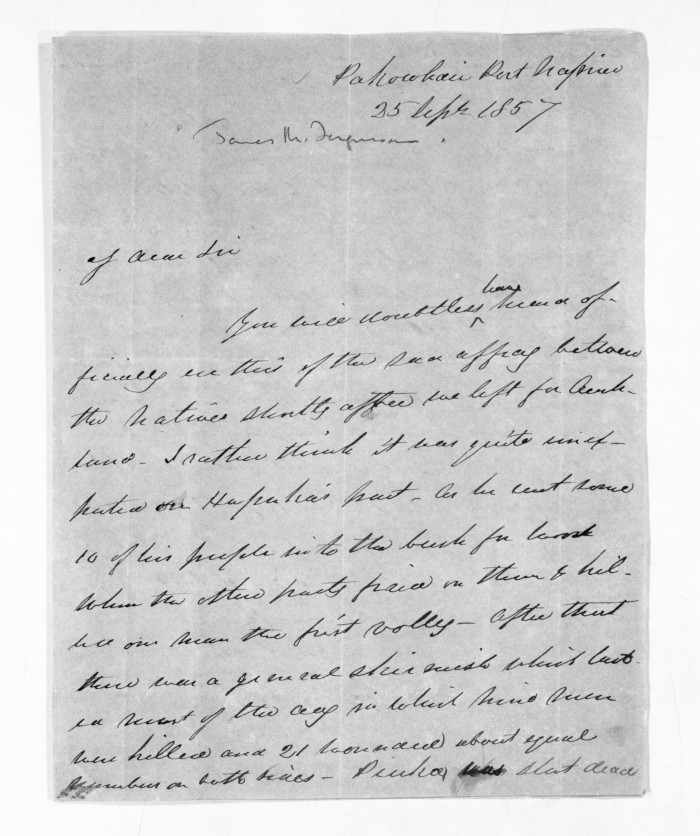 Pakowhai Port Napier
25 Septr 1857
James M. Ferguson.
My dear Sir
You will doubtless have heard of-
ficially ere this of the sad affray between
the Natives shortly after we left for Auck-
land - I rather think it was quite unex-
pected on Hapuka's part - as he sent some
10 of his people into the bush for wood
when the other party fired on them & kil-
led one man the first volley - after that
there was a general skirmish which last-
ed most of the day in which nine men
were killed and 21 wounded about equal
numbers on both sides - was shot dead